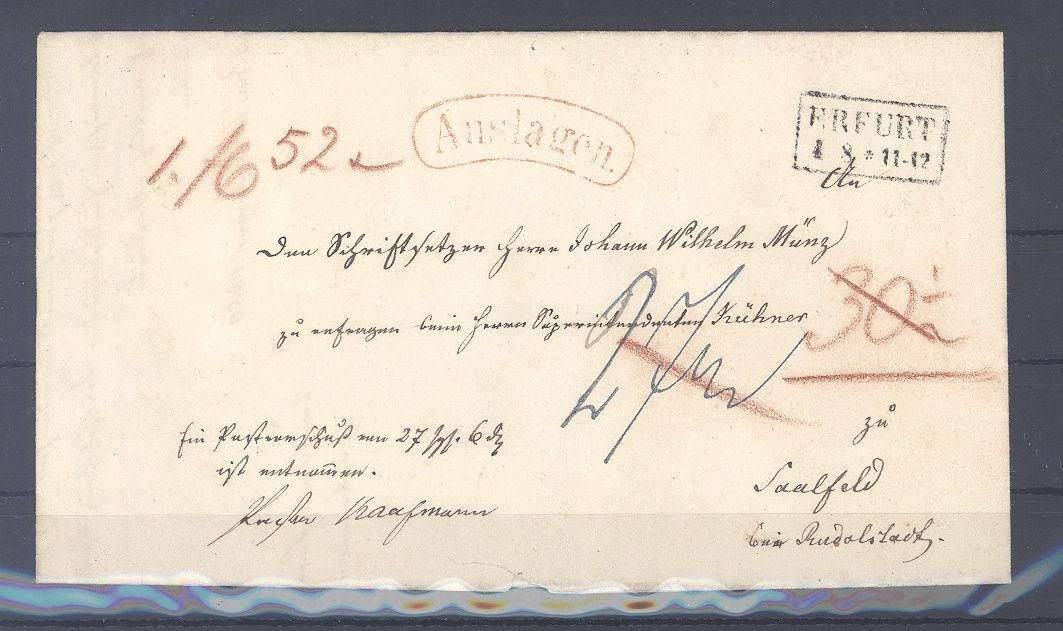 1. f 6
52 x
Auslagen.
ERFURT
4 8 * 11-12
An
Den Schriftsetzer Herrn Johann Wilhelm Münz
zu erfragen beim Herrn Superintendenten Kühner
30
zu
Ein Postvorschuß von 27 sgr. 6 d
ist entnommen.
Saalfeld
Kaufmann
bei Rudolstadt.